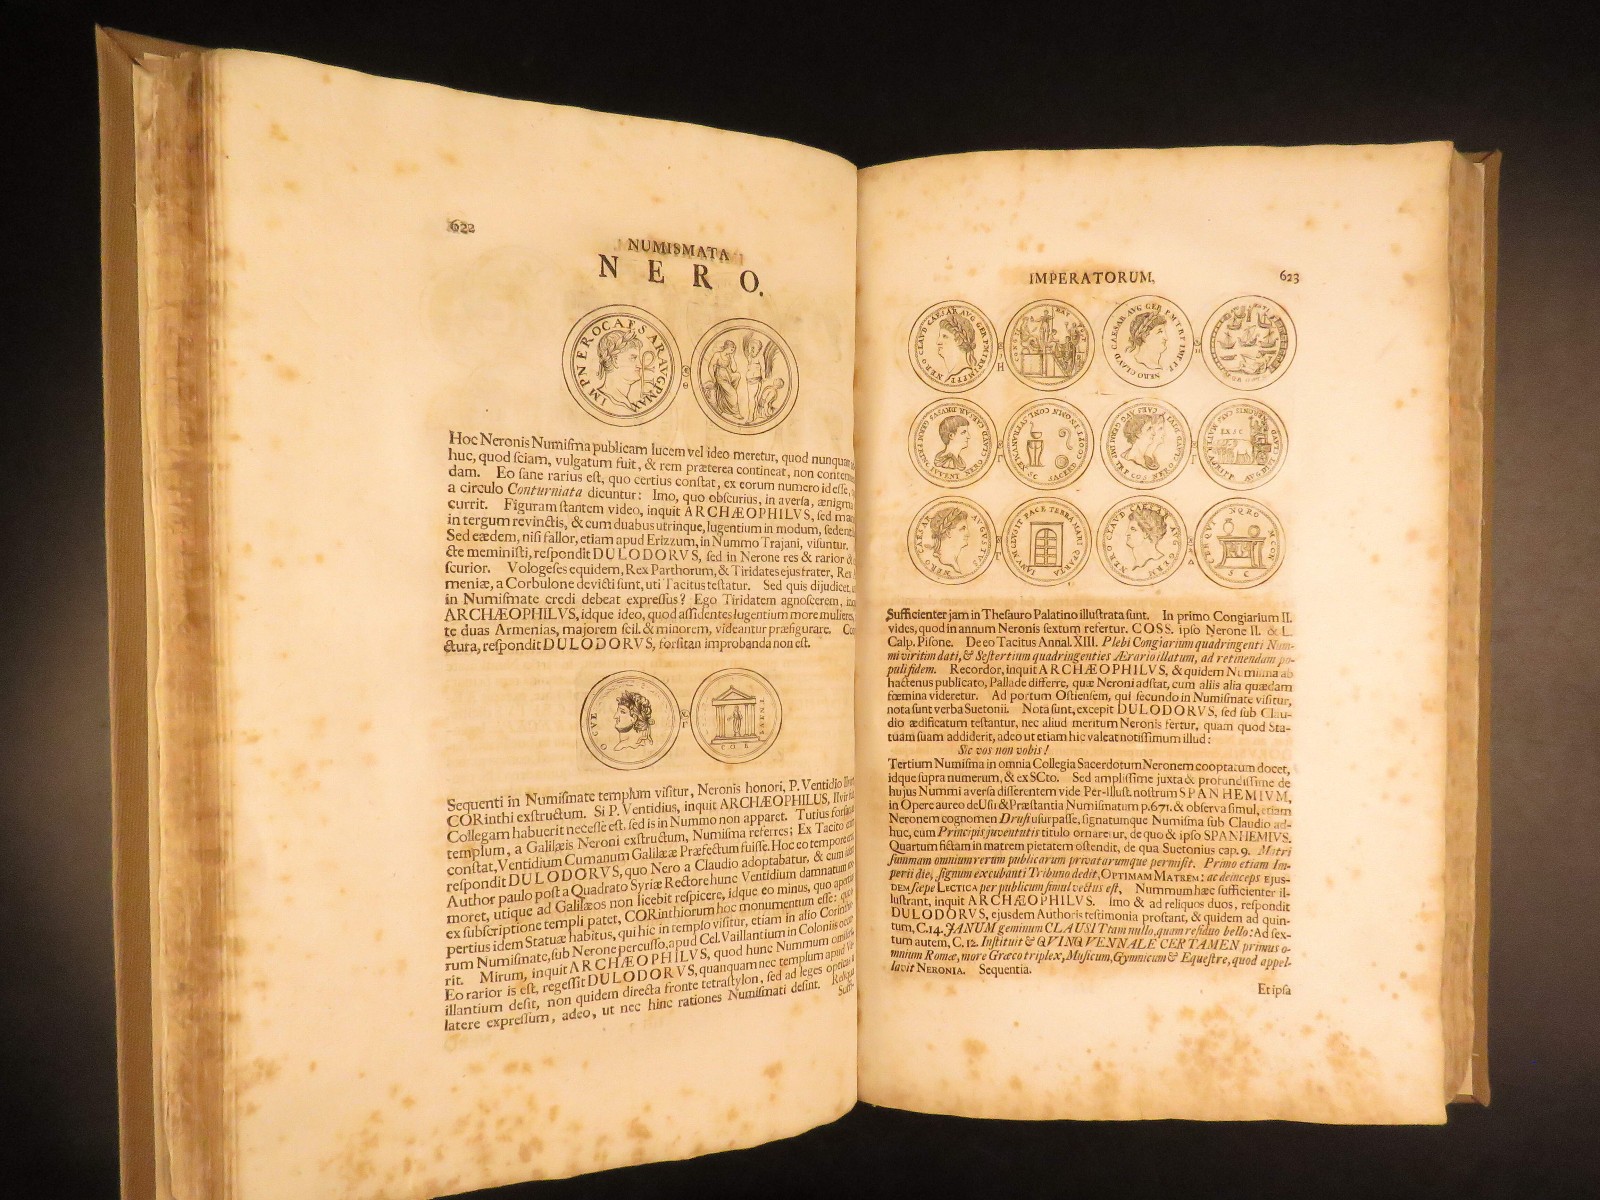 622
NUMISMATA
NERO.
IMP NERO CAESAR AVG P MAX
Hoc Neronis Numiſma publicam lucem vel ideo meretur, quod nunquam
huc, quod ſciam, vulgatum fuit, & rem præterea contineat, non contem
dam. Eo ſane rarius eſt, quo certius conſtat, ex eorum numero id eſſe,
a circulo Conturniata dicuntur: Imo, quo obſcurius, in averſa, ænigma
currit. Figuram ſtantem video, inquit ARCHÆOPHILVS, ſed
in tergum revinctis, & cum duabus utrinque, lugentium in modum,
Sed eædem, ni ſi fallor, etiam apud Erizzum, in Nummo Trajani, viſuntur.
cte meminiſti, reſpondit DULODORVS, ſed in Nerone res & rarior
ſcurior. Vologeſes equidem, Rex Parthorum, & Tiridates ejus frater, Rex
meniæ, a Corbulone devicti ſunt, uti Tacitus teſtatur. Sed quis dijudicet,
in Numiſmate credi debeat expreſſus? Ego Tiridatem agnoſcerem,
ARCHÆOPHILVS, idque ideo, quod aſſidentes lugentium more mulieres,
te duas Armenias, majorem ſcil. & minorem, videantur præfigurare. Con
ctura, reſpondit DULODORVS, forſitan improbanda non eſt.
COR
Sequenti in Numiſmate templum viſitur, Neronis honori, P. Ventidio
CORinthi exſtructum. Si P. Ventidius, inquit ARCHÆOPHILUS, IIvir
Collegam habuerit neceſſe eſt, ſed is in Nummo non apparet. Tutius
templum, a Galilæis Neroni exſtructum, Numiſma referres; Ex Tacito
conſtat, Ventidium Cumanum Galilææ Præfectum fuiſſe. Hoc eo tempore
reſpondit DULODORVS, quo Nero a Claudio adoptabatur, & cum
Author paulo poſt a Quadrato Syriæ Rectore hunc Ventidium damnatum
moret, utique ad Galilæos non licebit reſpicere, idque eo minus, quo
ex ſubſcriptione templi patet, CORinthiorum hoc monumentum eſſe:
pertius idem Statuæ habitus, qui hic in templo viſitur, etiam in alio
rum Numiſmate, ſub Nerone percuſſo, apud Cel. Vaillantium in Coloniis
rit. Mirum, inquit ARCHÆOPHILVS, quod hunc Nummum
Eo rarior is eſt, regeſſit DULODORVS, quanquam nec templum apud
illantium deſit, non quidem directa fronte tetraſtylon, ſed ad leges
latere expreſſum, adeo, ut nec hinc rationes Numiſmati deſint. Reliqua
Suffi-
IMPERATORUM. 623
Sufficienter jam in Theſauro Palatino illuſtrata ſunt. In primo Congiarium II.
vides, quod in annum Neronis ſextum refertur. COSS. ipſo Nerone II. & L.
Calp. Piſone. De eo Tacitus Annal. XIII. Plebi Congiarium quadringenti Num-
mi viritim dati, & Seſtertium quadringenties Ærario illatum, ad retinendam po-
puli fidem. Recordor, inquit ARCHÆOPHILVS, & quidem Numiſma ab
hactenus publicato, Pallade differre, quæ Neroni adſtat, cum aliis alia quædam
fœmina videretur. Ad portum Oſtienſem, qui ſecundo in Numiſmate viſitur,
nota ſunt verba Suetonii. Nota ſunt, excepit DULODORVS, ſed ſub Clau-
dio ædificatum teſtantur, nec aliud meritum Neronis fertur, quam quod Sta-
tuam ſuam addiderit, adeo ut etiam hic valeat notiſſimum illud:
Sic vos non vobis!
Tertium Numiſma in omnia Collegia Sacerdotum Neronem cooptatum docet,
idque ſupra numerum, & ex SCto. Sed ampliſſime juxta & profundiſſime de
hujus Nummi averſa diſſerentem vide Per-Illuſt. noſtrum SPANHEMIVM,
in Opere aureo de Uſu & Præſtantia Numiſmatum p. 671. & obſerva ſimul, etiam
Neronem cognomen Druſi uſurpaſſe, ſignatumque Numiſma ſub Claudio ad-
huc, cum Principis juventutis titulo ornaretur, de quo & ipſo SPANHEMIVS.
Quartum fictam in matrem pietatem oſtendit, de qua Suetonius cap. 9. Matri
ſummam omnium rerum publicarum privatarumque permiſit. Primo etiam Im-
perii die, ſignum excubanti Tribuno dedit, OPTIMAM MATREM: ac deinceps EJUS-
DEM ſæpe LECTICA per publicum ſimul vectus eſt. Nummum hæc ſufficienter il-
luſtrant, inquit ARCHÆOPHILVS. Imo & ad reliquos duos, reſpondit
DULODORVS, ejusdem Authoris teſtimonia proſtant, & quidem ad quin-
tum, C. 14. JANUM geminum CLAUSIT tam nullo, quam reſiduo bello: Ad ſex-
tum autem, C. 12. Inſtituit & QVINQVENNALE CERTAMEN primus o-
mnium Romæ, more Græco triplex, Muſicum, Gymnicum & Equeſtre, quod appel-
lavit NERONIA. Sequentia.
Et ipſa